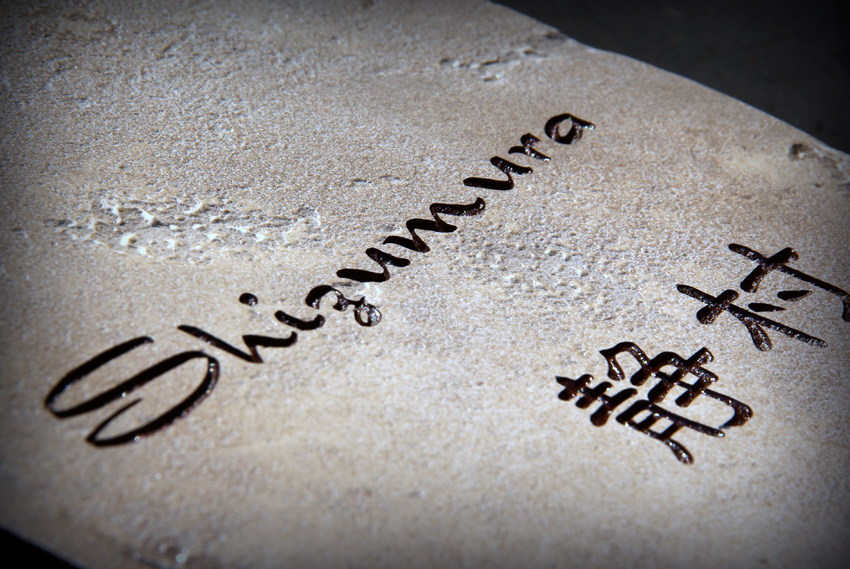 Shizumura
静村